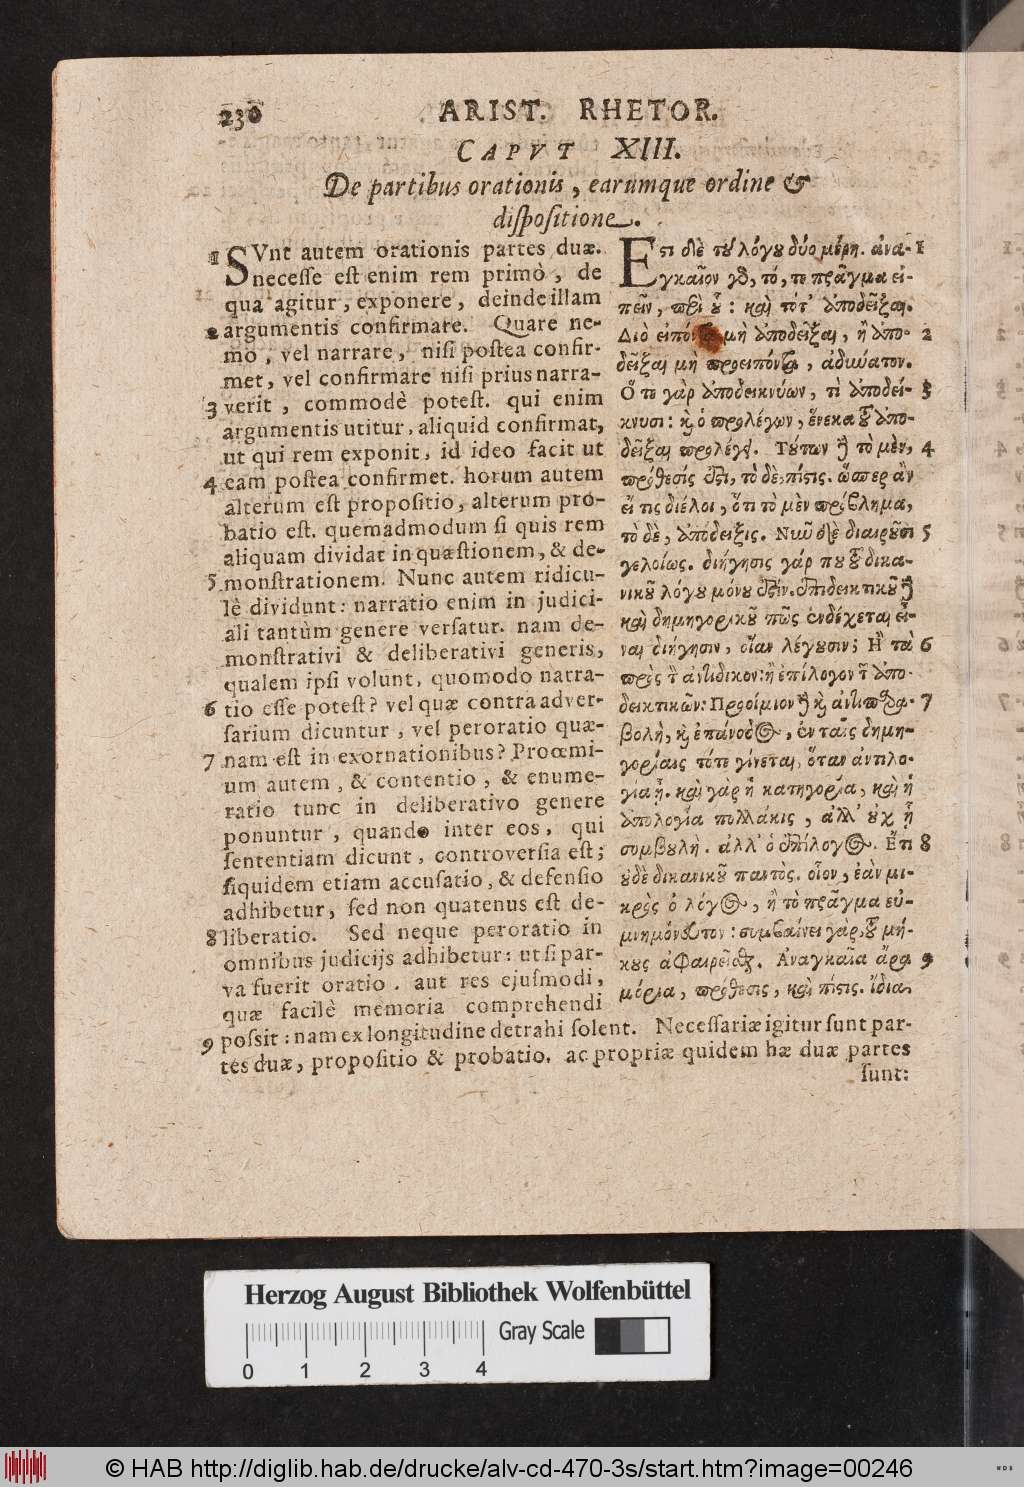 230 ARIST. RHETOR.
CAPVT XIII.
De partibus orationis, earumque ordine &
dispositione.
1 SVnt autem orationis partes duæ.
necesse est enim rem primò, de
qua agitur, exponere, deinde illam
2 argumentis confirmare. Quare ne-
mo, vel narrare, nisi postea confir-
met, vel confirmare nisi prius narra-
3 verit, commodè potest. qui enim
argumentis utitur, aliquid confirmat,
ut qui rem exponit, id ideo facit ut
4 eam postea confirmet. horum autem
alterum est propositio, alterum pro-
batio est. quemadmodum si quis rem
aliquam dividat in quæstionem, & de-
5 monstrationem. Nunc autem ridicu-
lè dividunt: narratio enim in judici-
ali tantùm genere versatur. nam de-
monstrativi & deliberativi generis,
qualem ipsi volunt, quomodo narra-
6 tio esse potest? vel quæ contra adver-
sarium dicuntur, vel peroratio quæ-
7 nam est in exornationibus? Proœmi-
um autem, & contentio, & enume-
ratio tunc in deliberativo genere
ponuntur, quando inter eos, qui
sententiam dicunt, controversia est;
siquidem etiam accusatio, & defensio
adhibetur, sed non quatenus est de-
8 liberatio. Sed neque peroratio in
omnibus judicijs adhibetur: ut si par-
va fuerit oratio. aut res ejusmodi,
quæ facilè memoria comprehendi
9 possit: nam ex longitudine detrahi solent. Necessariæ igitur sunt par-
tes duæ, propositio & probatio. ac propriæ quidem hæ duæ partes
sunt:
Ἔστι δὲ τοῦ λόγου δύο μέρη. ἀνα- 1
γκαῖον γὰρ, τό, τε πρᾶγμα εἰ-
πεῖν, περὶ οὗ: καὶ τότ' ἀποδεῖξαι.
Διὸ εἰπόντα μὴ ἀποδεῖξαι, ἢ ἀπο- 2
δεῖξαι μὴ προειπόντα, ἀδύνατον.
Ὅ τε γὰρ ἀποδεικνύων, τὶ ἀποδεί- 3
κνυσι: καὶ ὁ προλέγων, ἕνεκα τοῦ ἀπο-
δεῖξαι προλέγει. Τούτων δὲ τὸ μὲν, 4
πρόθεσίς ἐστι, τὸ δὲ, πίστις. ὥσπερ ἂν
εἴ τις διέλοι, ὅτι τὸ μὲν πρόβλημα,
τὸ δὲ, ἀπόδειξις. Νῦν δὲ διαιροῦσι 5
γελοίως. διήγησις γάρ που τοῦ δικα-
νικοῦ λόγου μόνου ἐστίν. ἐπιδεικτικοῦ δὲ
καὶ δημηγορικοῦ πῶς ἐνδέχεται εἶ-
ναι διήγησιν, οἵαν λέγουσιν; Ἢ τὰ 6
πρὸς τὸν ἀντίδικον: ἢ ἐπίλογον τῶν ἀπο-
δεικτικῶν: Προοίμιον δὲ καὶ ἀντιπαρα- 7
βολὴ, καὶ ἐπάνοδος, ἐν ταῖς δημη-
γορίαις τότε γίνεται, ὅταν ἀντιλο-
γία ᾖ. καὶ γὰρ ἡ κατηγορία, καὶ ἡ
ἀπολογία πολλάκις, ἀλλ' οὐχ ᾗ
συμβουλή. ἀλλ' ὁ ἐπίλογος. Ἔτι 8
οὐδὲ δικανικοῦ παντὸς. οἷον, ἐὰν μι-
κρὸς ὁ λόγος, ἢ τὸ πρᾶγμα εὐ-
μνημόνευτον: συμβαίνει γὰρ, τοῦ μή-
κους ἀφαιρεῖσθαι. Ἀναγκαῖα ἄρα 9
μόρια, πρόθεσις, καὶ πίστις. ἴδια
Herzog August Bibliothek Wolfenbüttel
Gray Scale
0 1 2 3 4
© HAB http://diglib.hab.de/drucke/alv-cd-470-3s/start.htm?image=00246